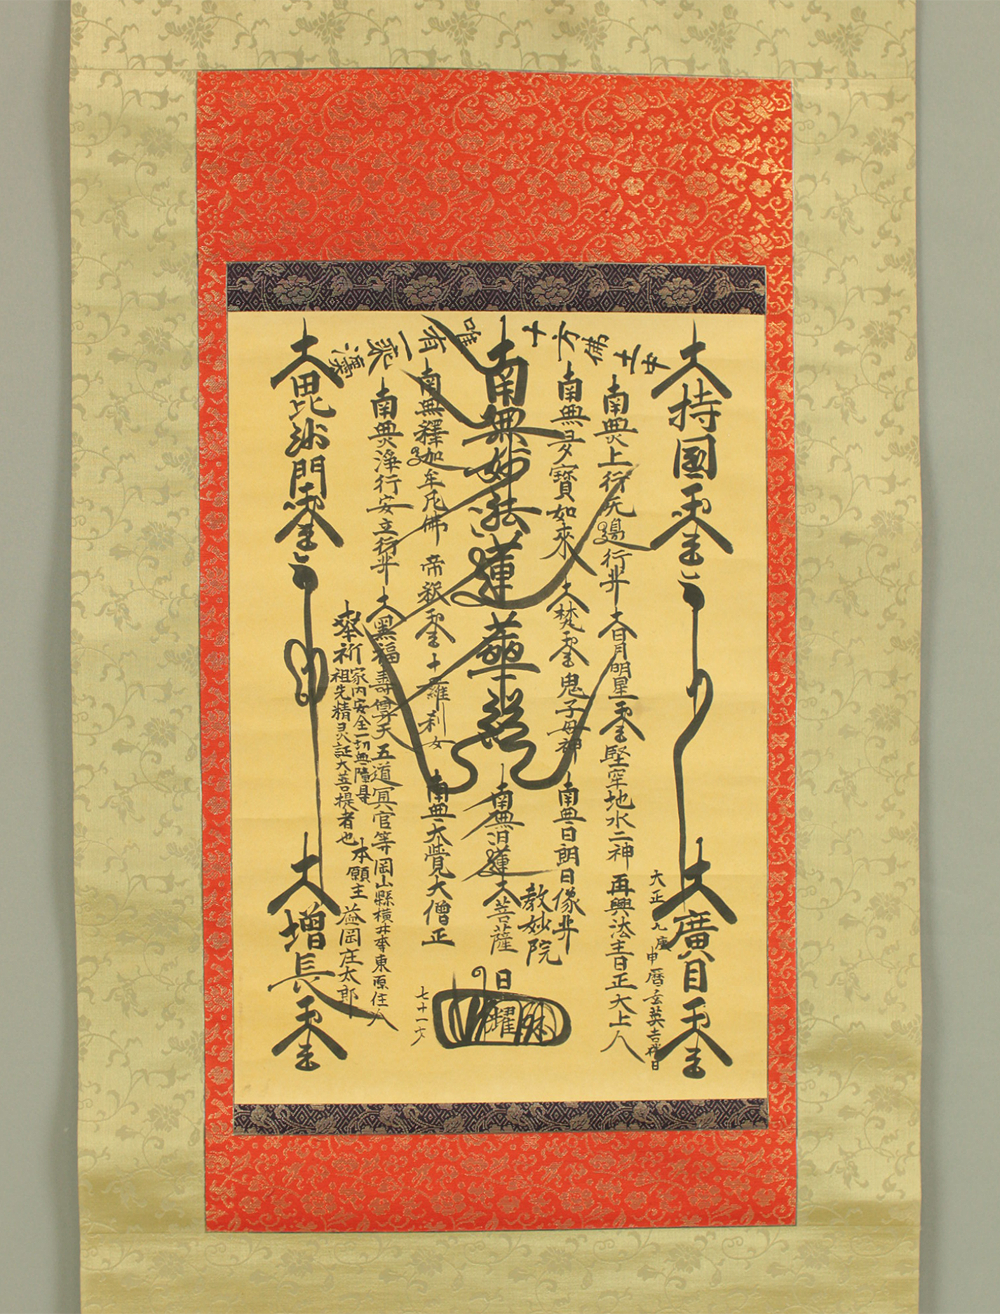 十方佛土中
唯有一乘法
大持國天王
大廣目天王
大正九庚申暦
南無上行无邊行菩
大日月明星天王
堅牢地水二神
再興法主日正大上人
南無多寶如來
大梵天王
鬼子母神
南無日朗日像菩
教妙院
南無妙法蓮華經
南無日蓮大菩薩
日耀
南無釋迦牟尼佛
帝釈天王
十羅刹女
南無大覺大僧正
七十一才
南無淨行安立行菩
大黒福壽尊天
五道冥官等
岡山縣横井村東原住人
奉祈
家内安全一切無障
祖先精灵証大菩提者也
本願主
益岡庄太郎
大毘沙門天王
大増長天王